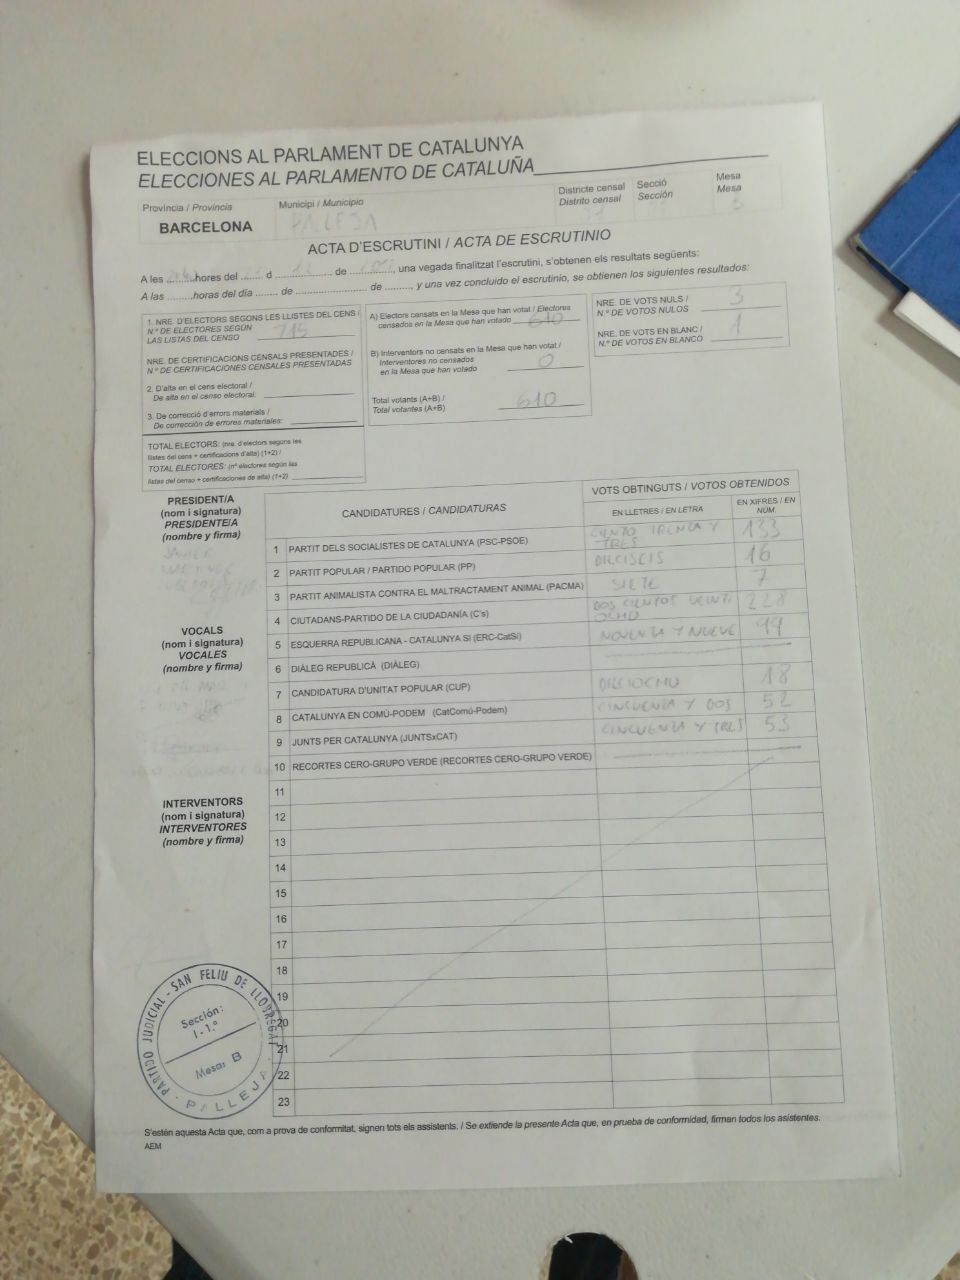 ELECCIONS AL PARLAMENT DE CATALUNYA
ELECCIONES AL PARLAMENTO DE CATALUÑA
Província / Provincia
BARCELONA
Municipi / Municipio
PALLEJA
Districte censal
Distrito censal
Secció
Sección
Mesa
Mesa
ACTA D'ESCRUTINI / ACTA DE ESCRUTINIO
A les ........hores del ....... d ................ de ........., una vegada finalitzat l'escrutini, s'obtenen els resultats següents:
A las .........horas del día ....... de ....................... de ........, y una vez concluido el escrutinio, se obtienen los siguientes resultados:
1. NRE. D'ELECTORS SEGONS LES LLISTES DEL CENS /
N.º DE ELECTORES SEGÚN
LAS LISTAS DEL CENSO 715
NRE. DE CERTIFICACIONS CENSALS PRESENTADES /
N.º DE CERTIFICACIONES CENSALES PRESENTADAS
2. D'alta en el cens electoral /
De alta en el censo electoral:
3. De correcció d'errors materials /
De corrección de errores materiales:
TOTAL ELECTORS: (nre. d'electors segons les
llistes del cens + certificacions d'alta) (1+2) /
TOTAL ELECTORES: (nº electores según las
listas del censo + certificaciones de alta) (1+2)
A) Electors censats en la Mesa que han votat / Electores
censados en la Mesa que han votado 610
B) Interventors no censats en la Mesa que han votat /
Interventores no censados
en la Mesa que han votado 0
Total votants (A+B) /
Total votantes (A+B) 610
NRE. DE VOTS NULS /
N.º DE VOTOS NULOS 3
NRE. DE VOTS EN BLANC /
N.º DE VOTOS EN BLANCO 1
PRESIDENT/A
(nom i signatura)
PRESIDENTE/A
(nombre y firma)
JAVIER
VOCALS
(nom i signatura)
VOCALES
(nombre y firma)
INTERVENTORS
(nom i signatura)
INTERVENTORES
(nombre y firma)
CANDIDATURES / CANDIDATURAS
VOTS OBTINGUTS / VOTOS OBTENIDOS
EN LLETRES / EN LETRA
EN XIFRES / EN NÚM.
1 PARTIT DELS SOCIALISTES DE CATALUNYA (PSC-PSOE) CIENTO TREINTA Y TRES 133
2 PARTIT POPULAR / PARTIDO POPULAR (PP) DIECISEIS 16
3 PARTIT ANIMALISTA CONTRA EL MALTRACTAMENT ANIMAL (PACMA) SIETE 7
4 CIUTADANS-PARTIDO DE LA CIUDADANÍA (C's) DOS CIENTOS VEINTI OCHO 228
5 ESQUERRA REPUBLICANA - CATALUNYA SÍ (ERC-CatSí) NOVENTA Y NUEVE 99
6 DIÀLEG REPUBLICÀ (DIÀLEG)
7 CANDIDATURA D'UNITAT POPULAR (CUP) DIECIOCHO 18
8 CATALUNYA EN COMÚ-PODEM (CatComú-Podem) CINCUENTA Y DOS 52
9 JUNTS PER CATALUNYA (JUNTSxCAT) CINCUENTA Y TRES 53
10 RECORTES CERO-GRUPO VERDE (RECORTES CERO-GRUPO VERDE)
11
12
13
14
15
16
17
18
19
20
21
22
23
PARTIDO JUDICIAL - SAN FELIU DE LLOBREGAT
Sección:
1-1.º
Mesa: B
PALLEJA
S'estén aquesta Acta que, com a prova de conformitat, signen tots els assistents. / Se extiende la presente Acta que, en prueba de conformidad, firman todos los asistentes.
AEM